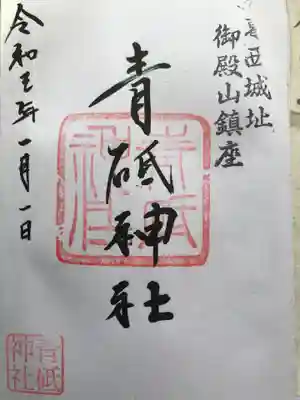 葛西城址
御殿山鎮座
青砥神社
令和五年一月一日
青砥
神社